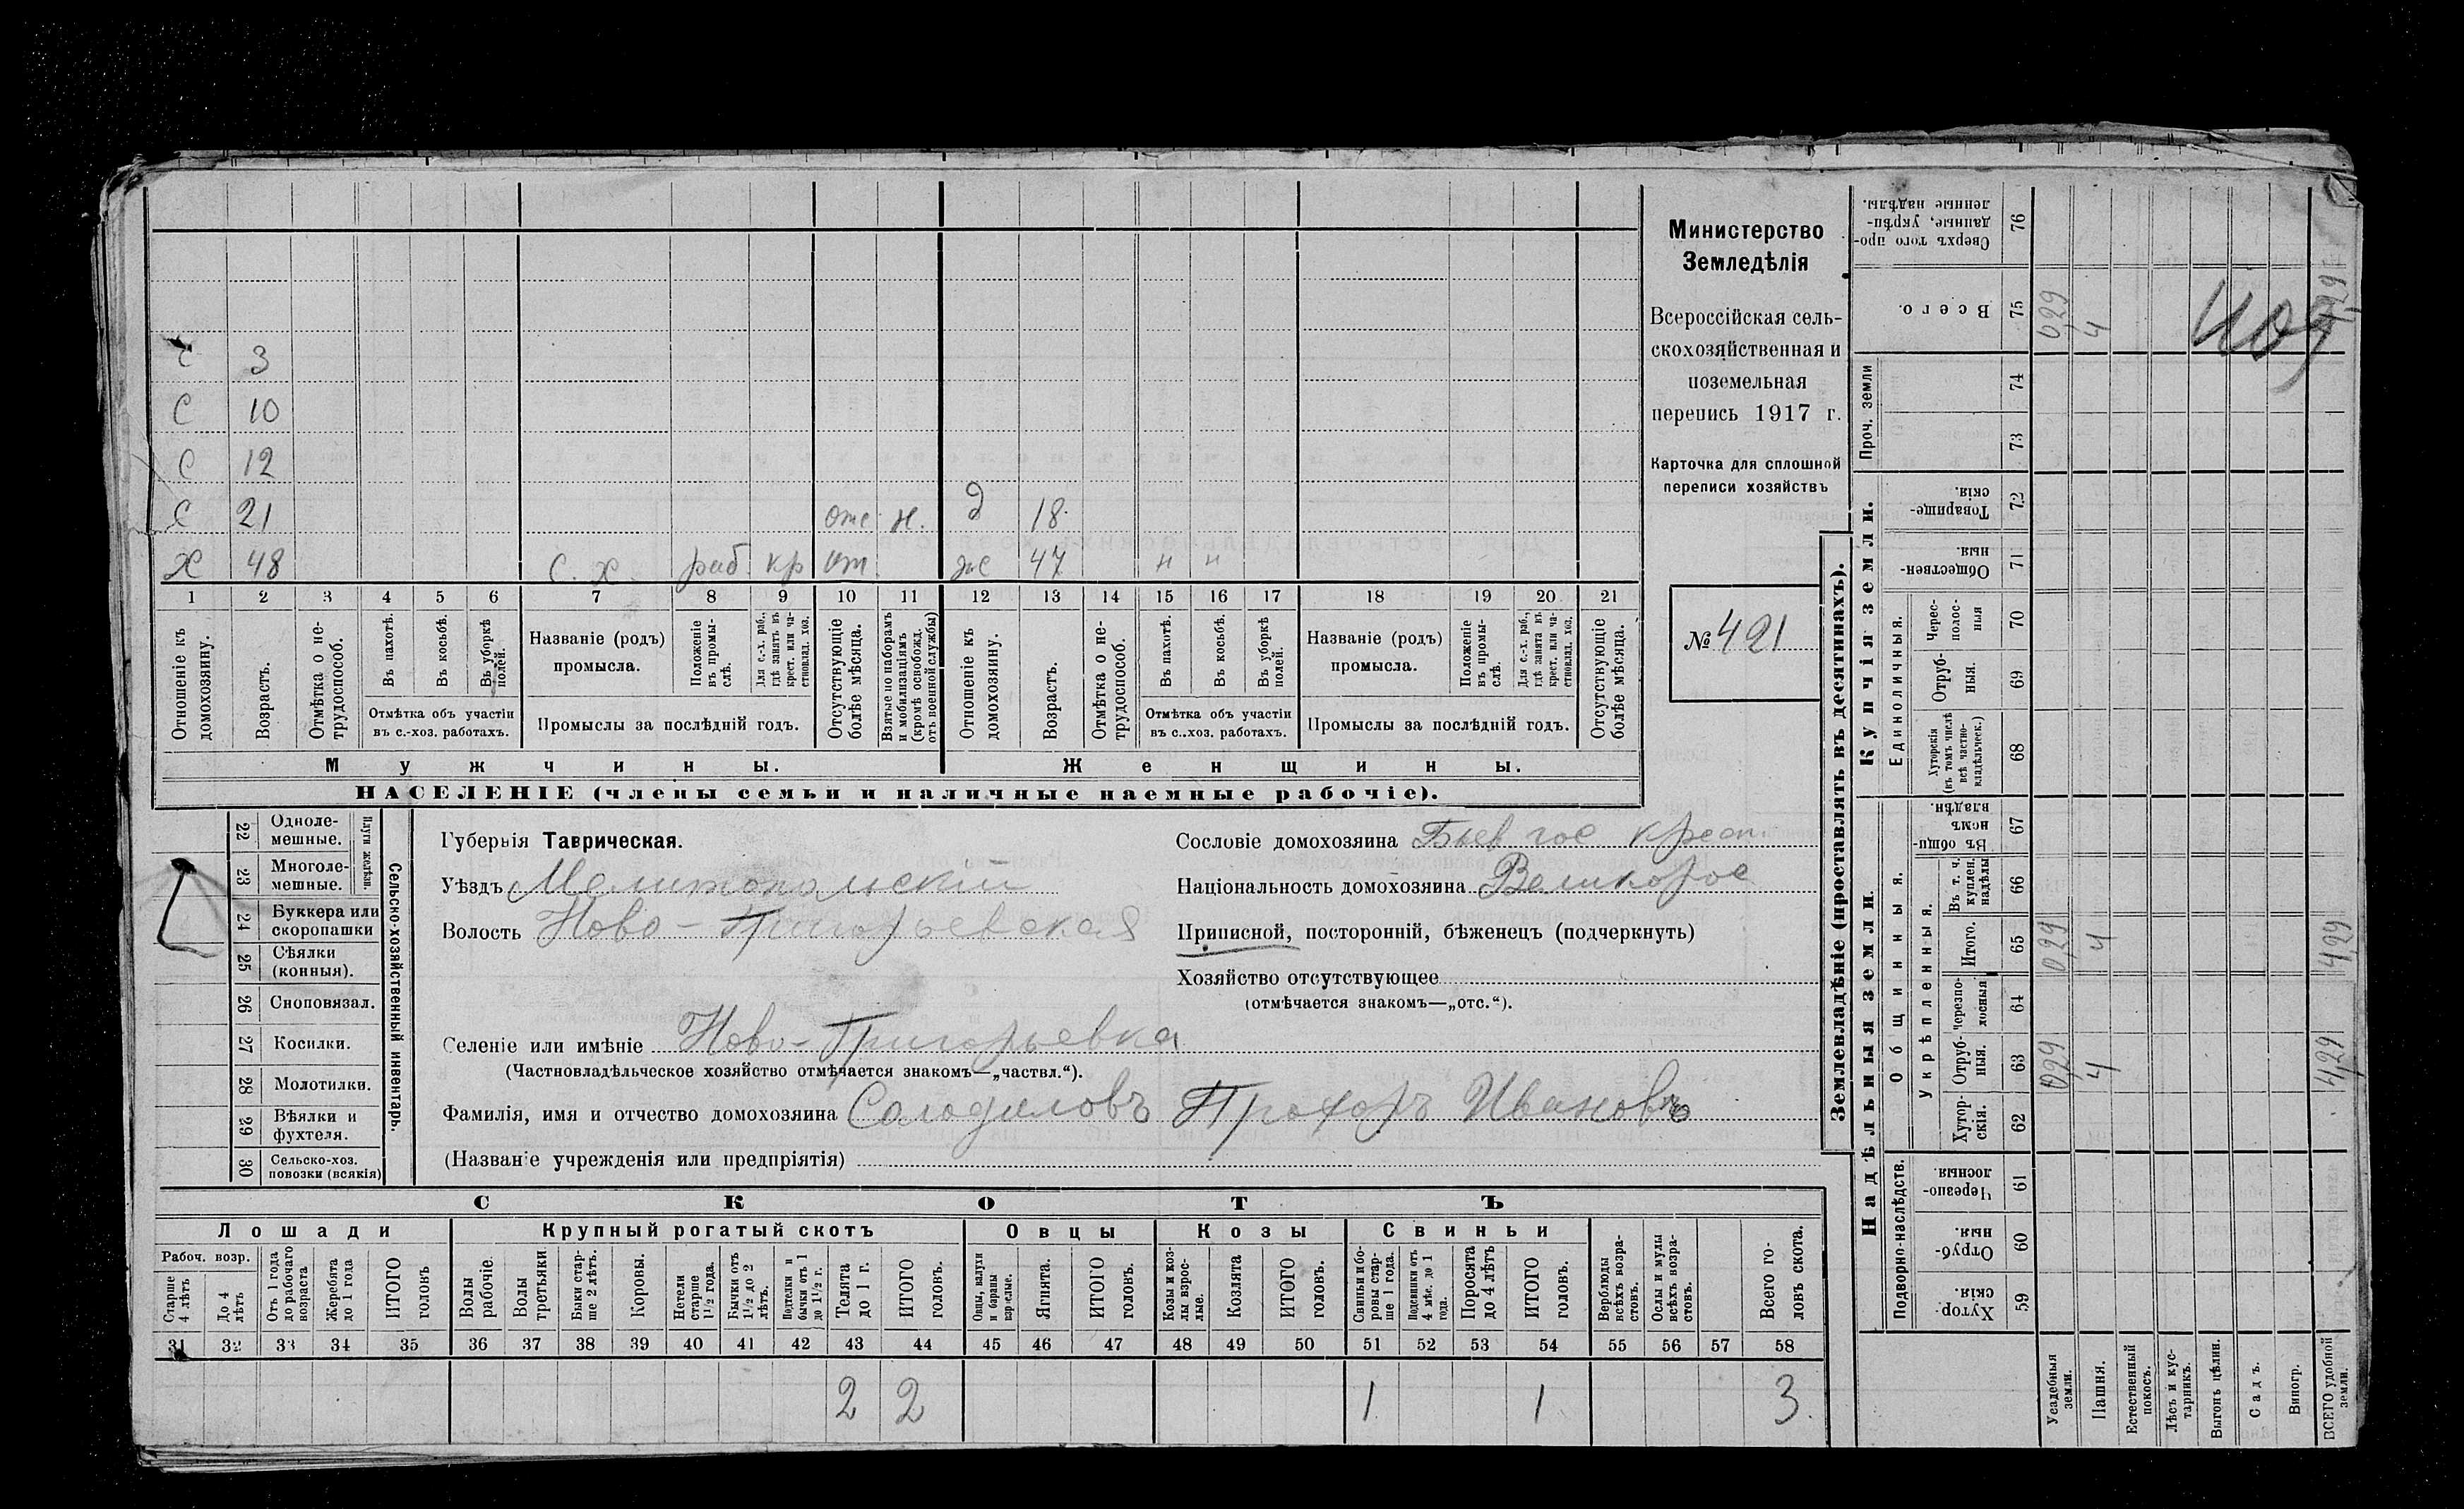 С 3
С 10
С 12
С 21 отс. н. д 18
Х 48 С. Х. раб. кр от. ж 47 н н
1 2 3 4 5 6 7 8 9 10 11 12 13 14 15 16 17 18 19 20 21
Отношеніе къ домохозяину.
Возрастъ.
Отмѣтка о нетрудоспособ.
Въ пахотѣ.
Въ косьбѣ.
Въ уборкѣ полей.
Отмѣтка объ участіи
въ с.-хоз. работахъ.
Названіе (родъ)
промысла.
Положеніе въ промыслѣ.
Для с.-х. раб., гдѣ занятъ въ крест. или частновлад. хоз.
Промыслы за послѣдній годъ.
Отсутствующіе болѣе мѣсяца.
Взятые по наборамъ и мобилизаціямъ (кромѣ освобожд. отъ военной службы)
Отношеніе къ домохозяину.
Возрастъ.
Отмѣтка о нетрудоспособ.
Въ пахотѣ.
Въ косьбѣ.
Въ уборкѣ полей.
Отмѣтка объ участіи
въ с..хоз. работахъ.
Названіе (родъ)
промысла.
Положеніе въ промыслѣ.
Для с.-х. раб., гдѣ занята въ крест. или частновлад. хоз.
Промыслы за послѣдній годъ.
Отсутствующіе болѣе мѣсяца.
Мужчины. Женщины.
НАСЕЛЕНІЕ (члены семьи и наличные наемные рабочіе).
Министерство
Земледѣлія
Всероссійская сель-
скохозяйственная и
поземельная
перепись 1917 г.
Карточка для сплошной
переписи хозяйствъ
№ 421
22 Однолемешные.
23 Многолемешные.
Плуги желѣзн.
24 Буккера или скоропашки
25 Сѣялки (конныя).
26 Сноповязал.
27 Косилки.
28 Молотилки.
29 Вѣялки и фухтеля.
30 Сельско-хоз. повозки (всякія)
Сельско-хозяйственный инвентарь.
Губернія Таврическая.
Уѣздъ Мелитопольскій
Волость Ново-Григорьевская
Сословіе домохозяина Быв гос крест.
Національность домохозяина Великорос
Приписной, посторонній, бѣженецъ (подчеркнуть)
Хозяйство отсутствующее
(отмѣчается знакомъ—„отс.“).
Селеніе или имѣніе Ново-Григорьевка
(Частновладѣльческое хозяйство отмѣчается знакомъ—„частвл.“).
Фамилія, имя и отчество домохозяина Солодиловъ Прохоръ Ивановъ
(Названіе учрежденія или предпріятія)
СКОТЪ
Лошади Крупный рогатый скотъ Овцы Козы Свиньи
Рабоч. возр.
Старше 4 лѣтъ
До 4 лѣтъ
Отъ 1 года до рабочаго возраста
Жеребята до 1 года
ИТОГО головъ
Волы рабочіе.
Волы третьяки
Быки старше 2 лѣтъ.
Коровы.
Нетели старше 1½ года.
Бычки отъ 1½ до 2 лѣтъ.
Подтелки и бычки отъ 1 до 1½ г.
Телята до 1 г.
ИТОГО головъ.
Овцы, валухи и бараны взрослые.
Ягнята.
ИТОГО головъ.
Козы и козлы взрослые.
Козлята
ИТОГО головъ.
Свиньи и боровы старше 1 года.
Подсвинки отъ 4 мѣс. до 1 года.
Поросята до 4 лѣтъ
ИТОГО головъ.
Верблюды всѣхъ возрастовъ.
Ослы и мулы всѣхъ возрастовъ.
Всего головъ скота.
31 32 33 34 35 36 37 38 39 40 41 42 43 44 45 46 47 48 49 50 51 52 53 54 55 56 57 58
2 2 1 1 3
Землевладѣніе (проставлять въ десятинахъ).
Надѣльныя земли. Купчія земли. Проч. земли
Подворно-наслѣдств.
Общинныя.
Укрѣпленныя.
Единоличныя.
Сверхъ того проданные, укрѣпленные надѣлы. 76
Всего. 75 0,29 4 4,29
409
74
73
Товарищескія. 72
Общественныя. 71
Чересполосныя 70
Отрубныя. 69
Хуторскія (въ томъ числѣ всѣ частновладѣльческ.) 68
Въ общинномъ владѣн. 67
Въ т. ч. куплен. надѣлы 66
Итого. 65 0,29 4 4,29
Черезполосныя 64
Отрубныя. 63 0,29 4 4,29
Хуторскія. 62
Черезполосныя. 61
Отрубныя. 60
Хуторскія. 59
Усадебныя земли.
Пашня.
Естественный покосъ.
Лѣсъ и кустарникъ.
Выгонъ цѣлин.
Садъ.
Виногр.
ВСЕГО удобной земли.